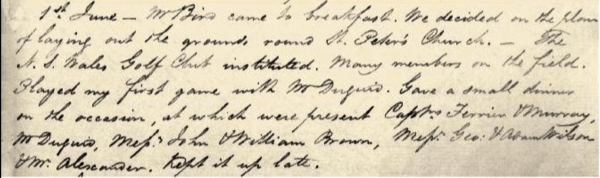 1st June — Mr Bird came to breakfast. We decided on the plan
of laying out the grounds round St. Peter's Church. — The
N. S. Wales Golf Club instituted. Many members on the field.
Played my first game with Mr Duguid. Gave a small dinner
on the occasion, at which were present Capts. Ferrier & Murray,
Mr Duguid, Messrs. John & William Brown, Messrs. Geo: & Adam Wilson
& Mr. Alexander. Kept it up late.